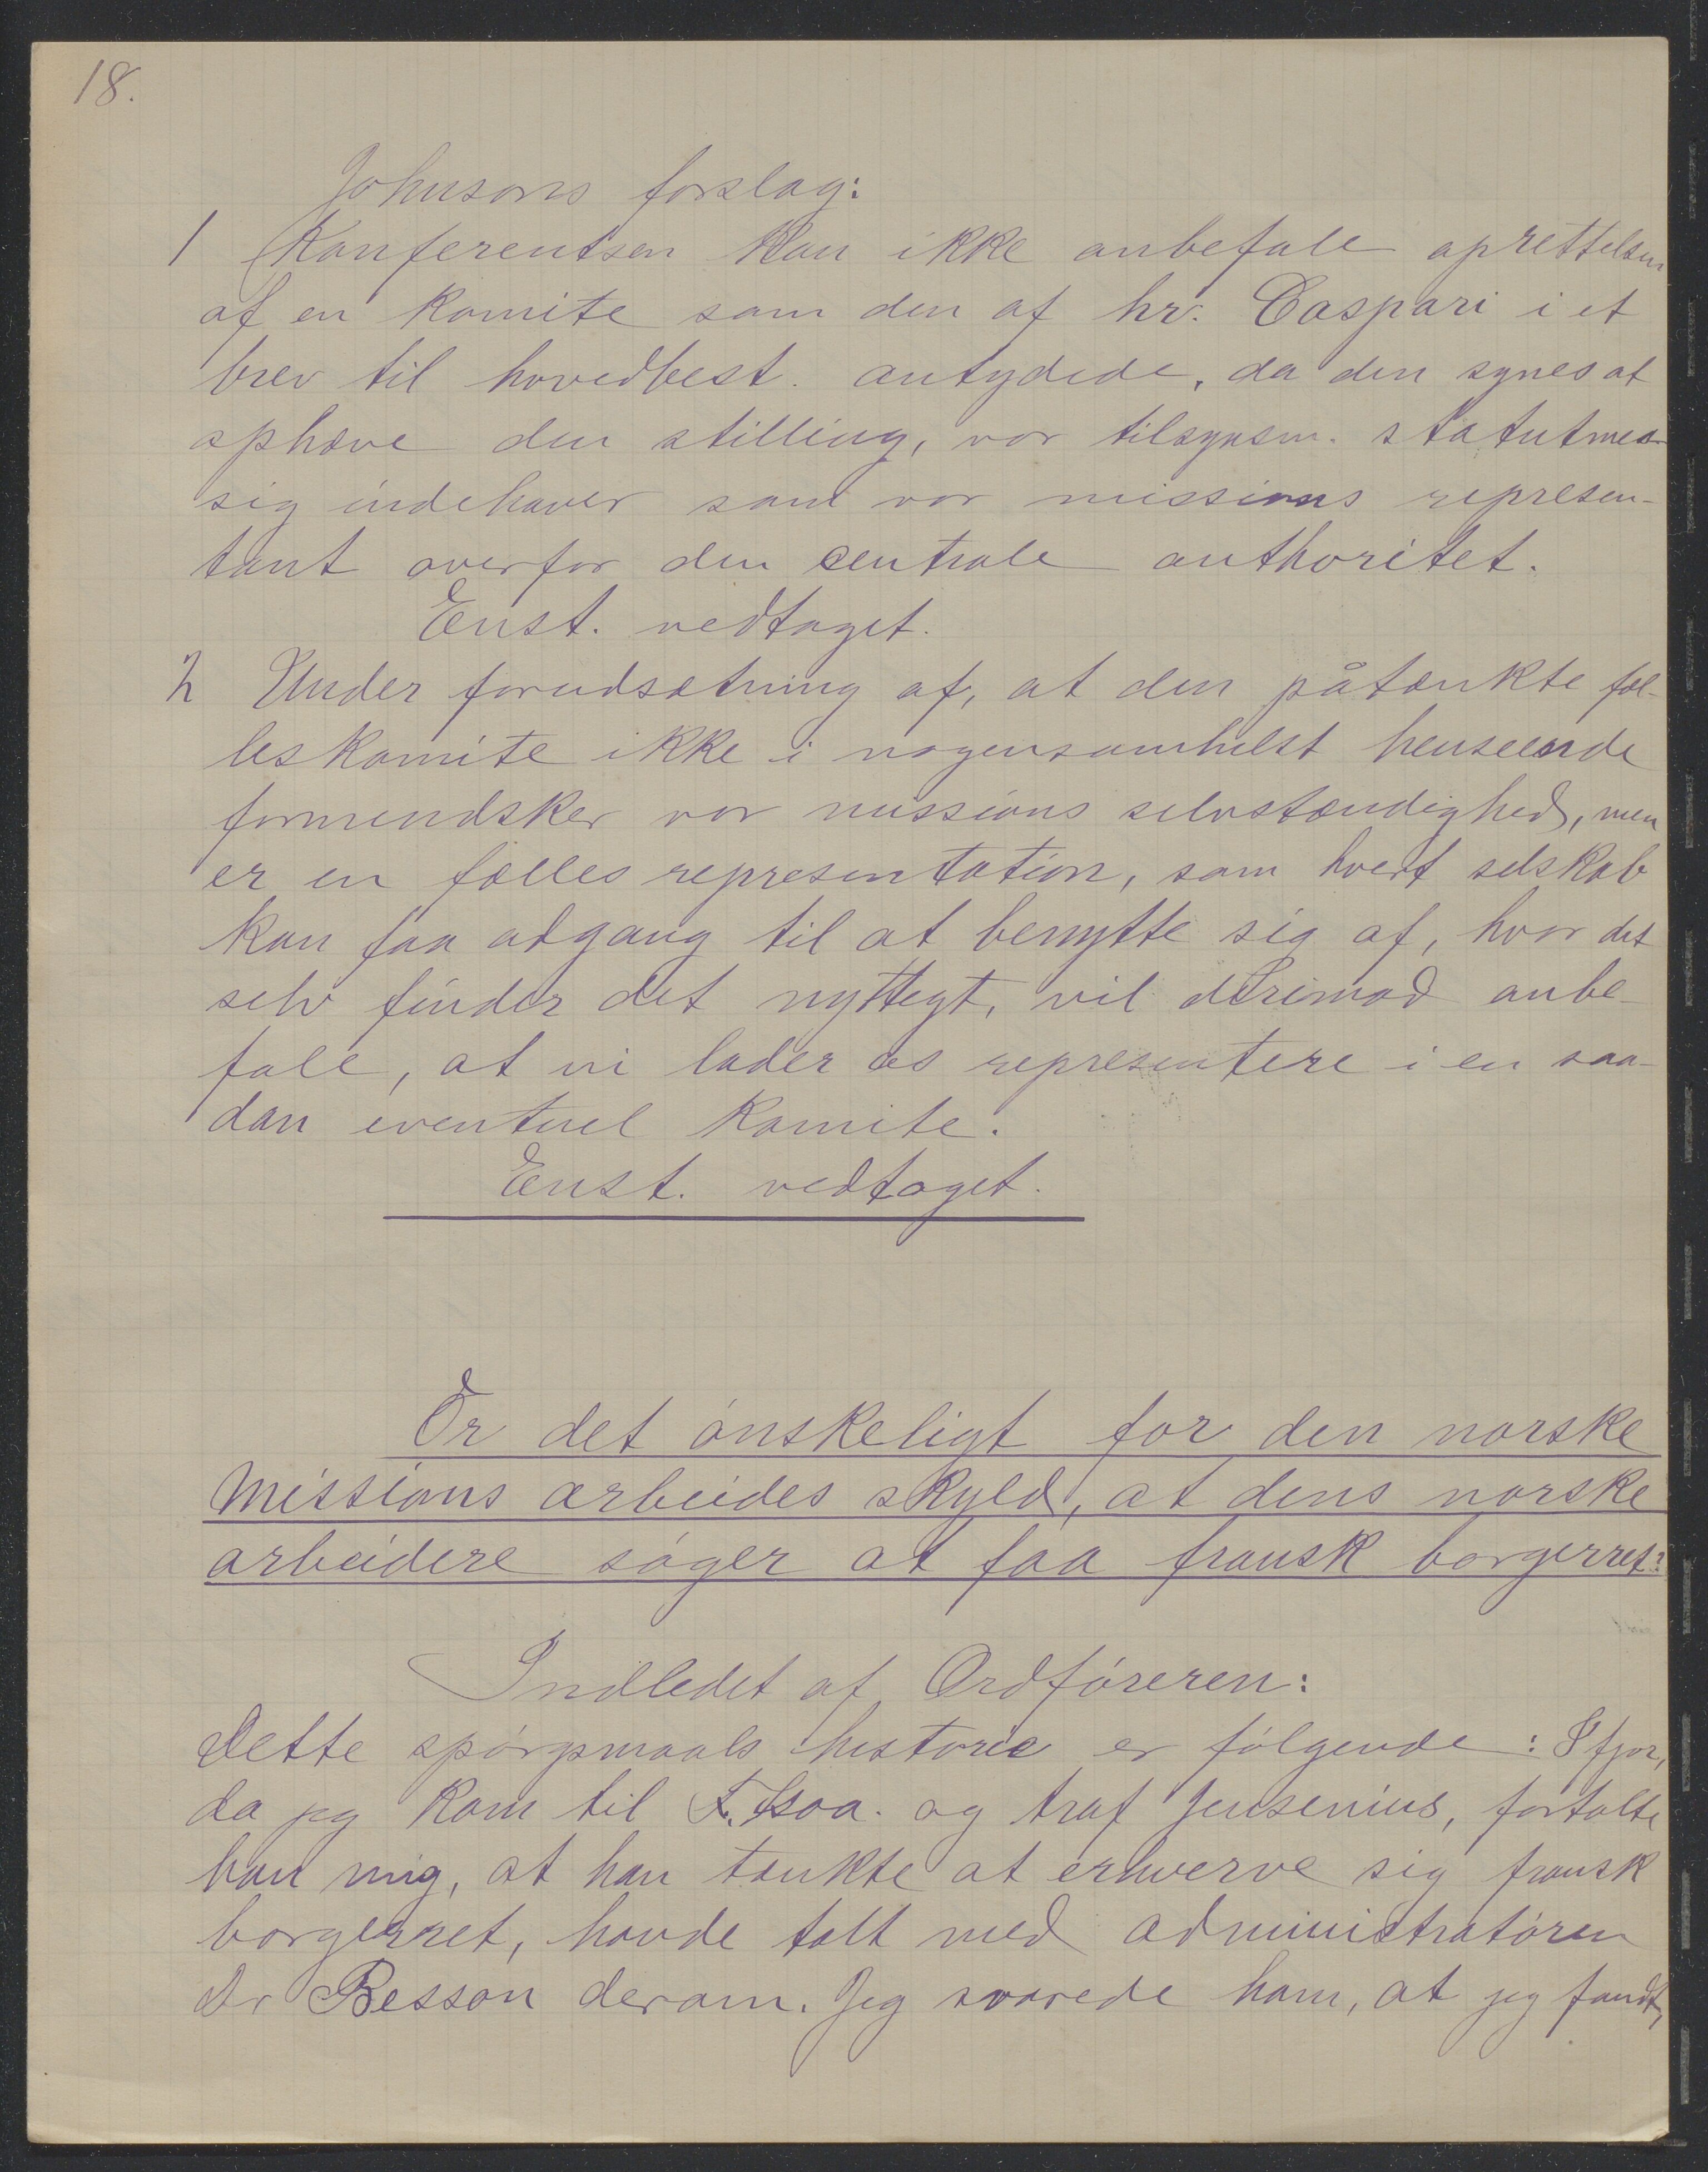 18.
Johnsons forslag:
1 Konferentsen kan ikke anbefale oprettelsen
af en komite som den af hr. Caspari i et
brev til hovedbest. antydede, da den synes at
ophæve den stilling, vor tilsynsm. statutmæs-
sig indehaver som vor missions represen-
tant overfor den centrale authoritet.
Enst. vedtaget.
2 Under forudsætning af, at den påtænkte fæl-
leskomite ikke i nogensomhelst henseende
formindsker vor missions selvstændighed, men
er en fælles representation, som hvert selskab
kan faa adgang til at benytte sig af, hvor det
selv finder det nyttigt, vil derimod anbe-
fale, at vi lader os representere i en saa-
dan eventuel komite.
Enst. vedtaget.
Er det ónskeligt for den norske
missions arbeides skyld, at dens norske
arbeidere sóger at faa fransk borgerret?
Indledet af Ordfóreren:
Dette spórgsmaals historie er fólgende: I fjor,
da jeg kom til F.tsoa. og traf Jensenius, fortalte
han mig, at han tænkte at erhverve sig fransk
borgerret, havde talt med administratóren
Dr Besson derom. Jeg svarede ham, at jeg fandt,